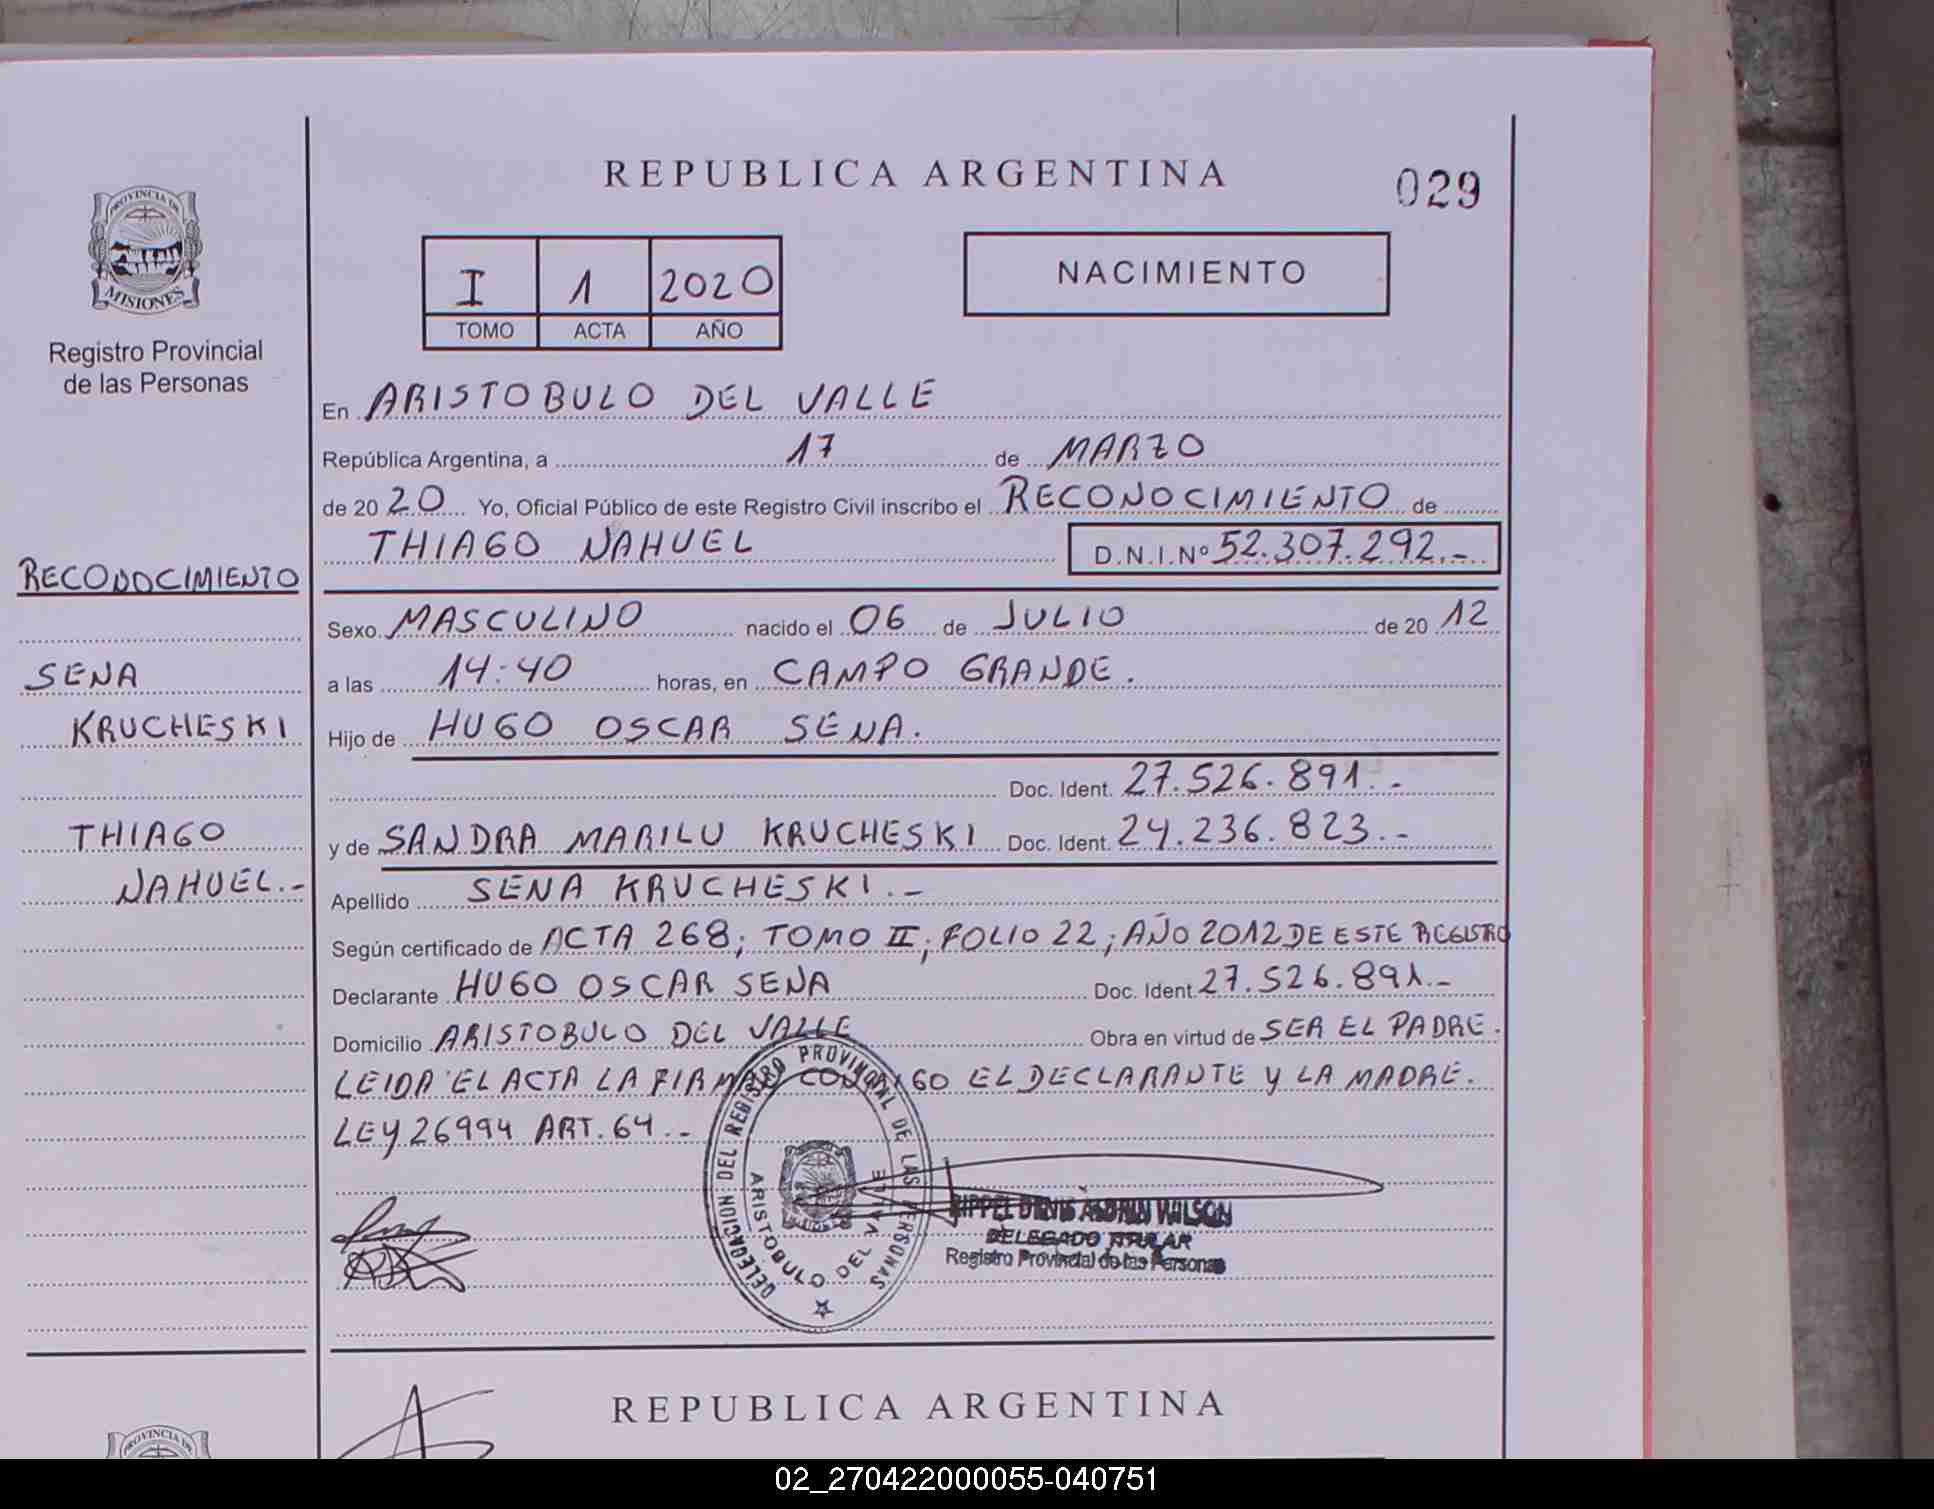 REPUBLICA ARGENTINA
029
PROVINCIA DE
MISIONES
Registro Provincial
de las Personas
I 1 2020
TOMO ACTA AÑO
NACIMIENTO
En ARISTOBULO DEL VALLE
República Argentina, a 17 de MARZO
de 20 20 Yo, Oficial Público de este Registro Civil inscribo el RECONOCIMIENTO de
THIAGO NAHUEL D.N.I.Nº 52.307.292.-
RECONOCIMIENTO
SENA
KRUCHESKI
THIAGO
NAHUEL.-
Sexo MASCULINO nacido el 06 de JULIO de 20 12
a las 14:40 horas, en CAMPO GRANDE.
Hijo de HUGO OSCAR SENA.
Doc. Ident. 27.526.891.-
y de SANDRA MARILU KRUCHESKI Doc. Ident. 24.236.823.-
Apellido SENA KRUCHESKI.-
Según certificado de ACTA 268; TOMO II; FOLIO 22; AÑO 2012 DE ESTE REGISTRO
Declarante HUGO OSCAR SENA Doc. Ident. 27.526.891.-
Domicilio ARISTOBULO DEL VALLE Obra en virtud de SER EL PADRE.
LEIDA EL ACTA LA FIRMAN CONMIGO EL DECLARANTE Y LA MADRE.
LEY 26994 ART. 64.-
DELEGACION DEL REGISTRO PROVINCIAL DE LAS PERSONAS
ARISTOBULO DEL VALLE
WILSON
DELEGADO TITULAR
Registro Provincial de las Personas
REPUBLICA ARGENTINA
PROVINCIA DE
02_270422000055-040751